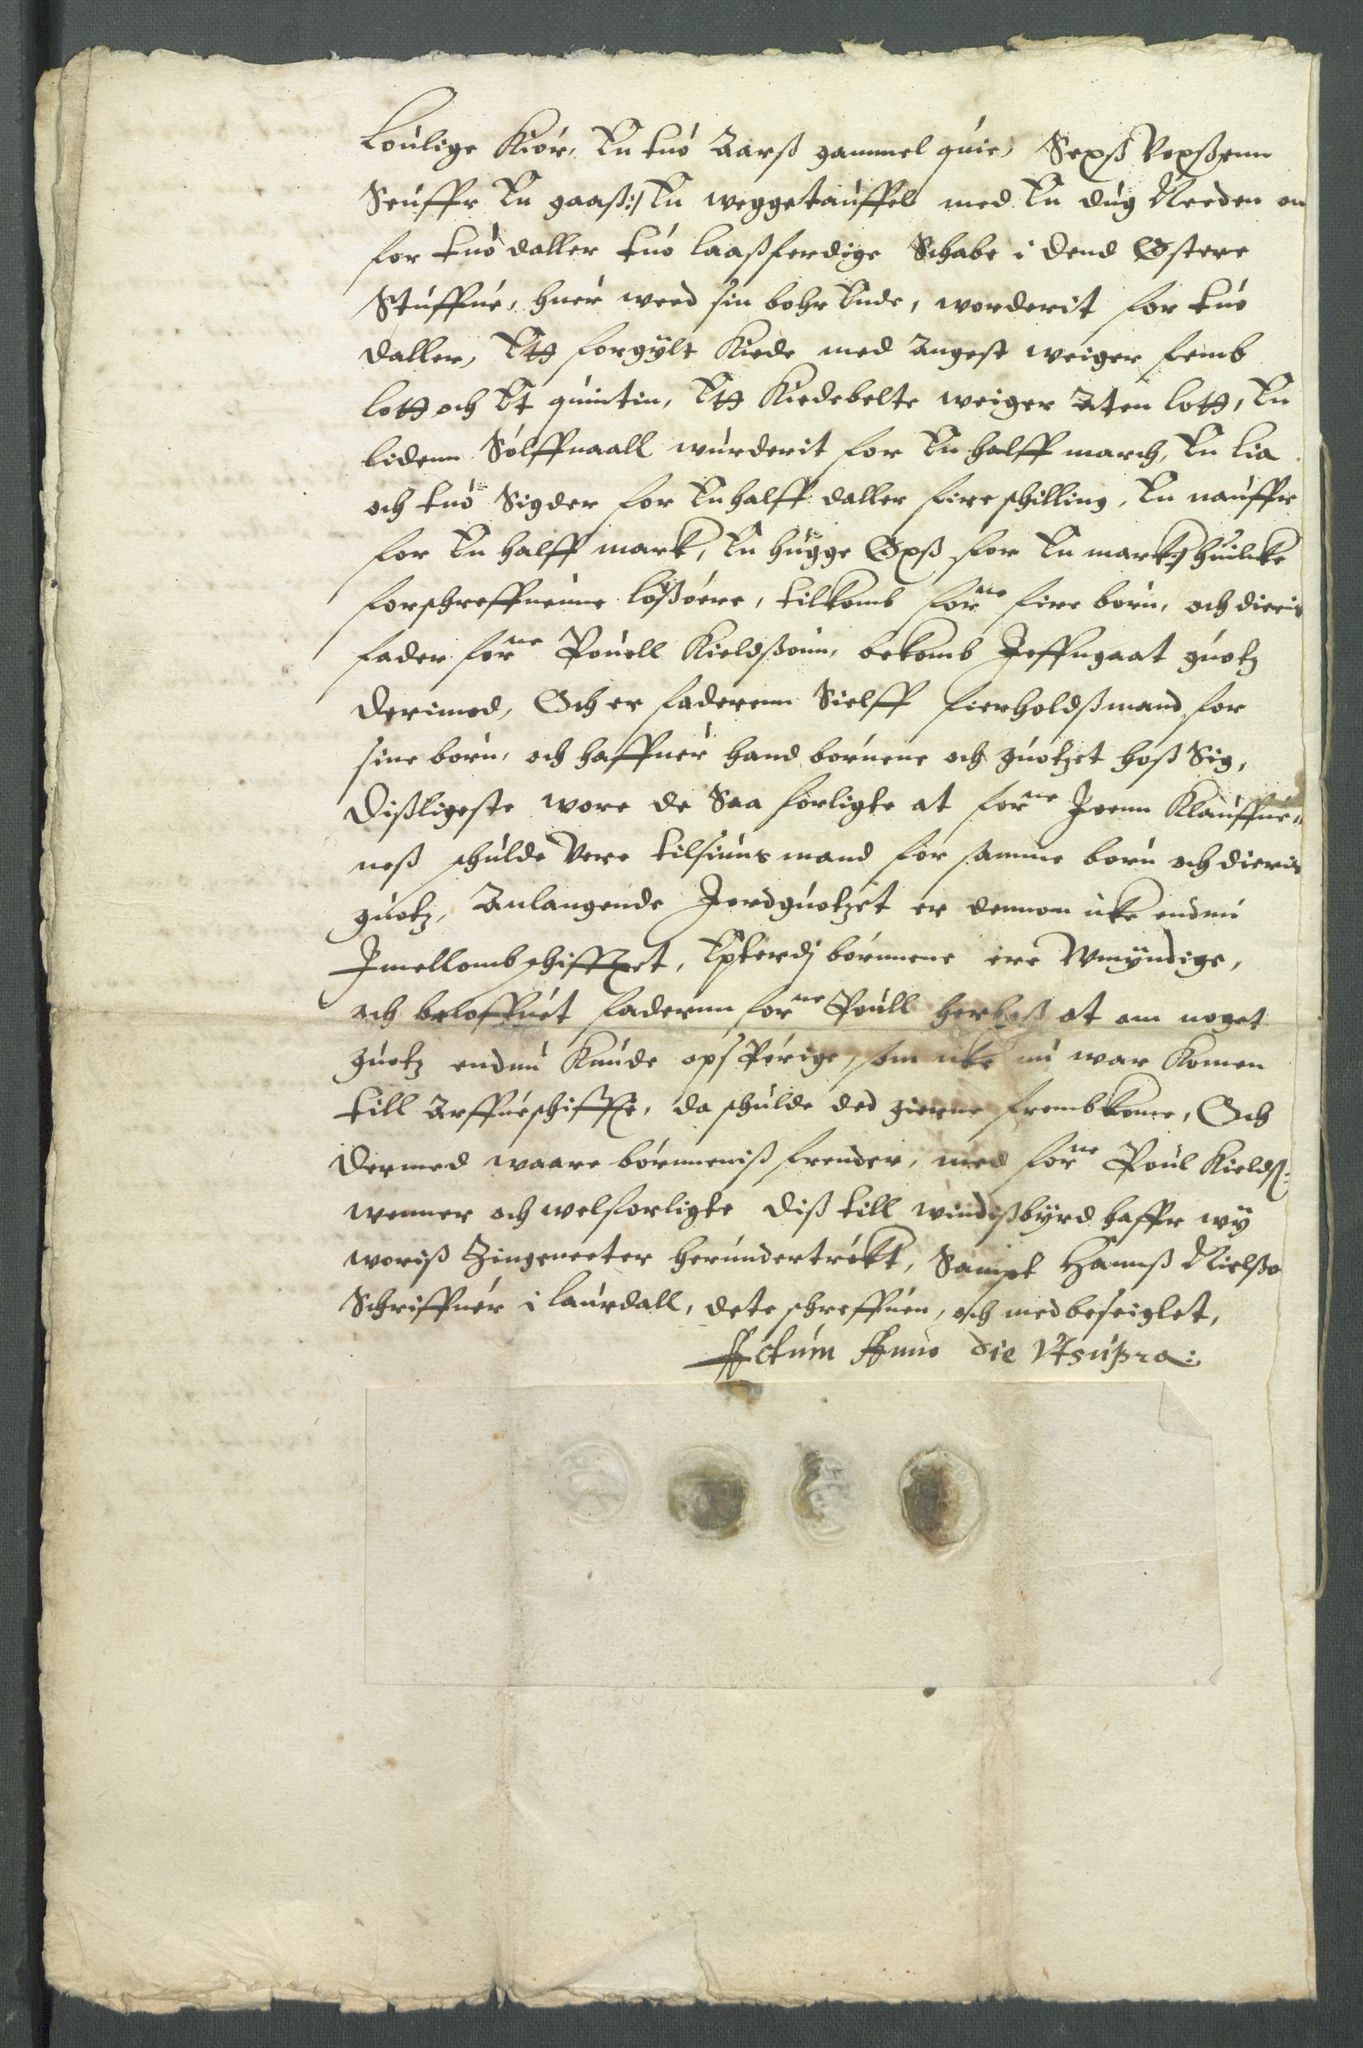 Loulige Kiór, En tuó Aarß gammel quie, Sexß Voxßenn
Seuffr En gaaß:/ En weggetauffel med En dúg Needen on
for tuó daller tuó laaßferdige Schabe i dend Østere
Stuffue, huer weed sin bohr Ende, worderit for tuó
daller, Ett forgÿlt Kiede med Angest weiger femb
lott och Et quintin, Ett Kiedebelte weiger Aten lott, En
lidenn Sólffnaall wurderit for En halff march, En lia
och tuó Sigder for En halff daller fire schilling, En nauffr
for En halff mark, En hugge Øxß for En mark, huilcke
forschreffnenne lößóere, tilkomb for.ne fire born, och dieris
fader for.ne Pouell Kieldßonn, bekomb Jeffngaat guotz
Derimod, Och er faderenn Sielff fierholdßmand for
sine born, och haffuer hand bórnene och guotzet hoß Sig,
Dißligeste wore de Saa forligte at for.ne Joenn Klauffue=
neß schulde Vere tilsiuns mand for samme born och dieris
guotz, Anlangende Jordguotzet er dennom icke endnu
Jmellomb schifftet, Epterdj bórnnene ere Wmÿndige,
och beloffuet faderenn for.ne Poull herhoß at om noget
guotz endnu Kunde opsPórige, som icke nu war Komen
till Arffueschiffte, da schulde ded gierne frembkome, Och
Dermed waare bórnneniß frender, med for.ne Poul Kieldß:
wenner och welforligte Diß till windißbÿrd haffr wÿ
woriß Zingneeter herundertrókt, Sampt Hannß Nielßo
Schriffuer i laurdall, dete schreffuen, och medbeseiglet,
Actum Anno die Vtsupra: